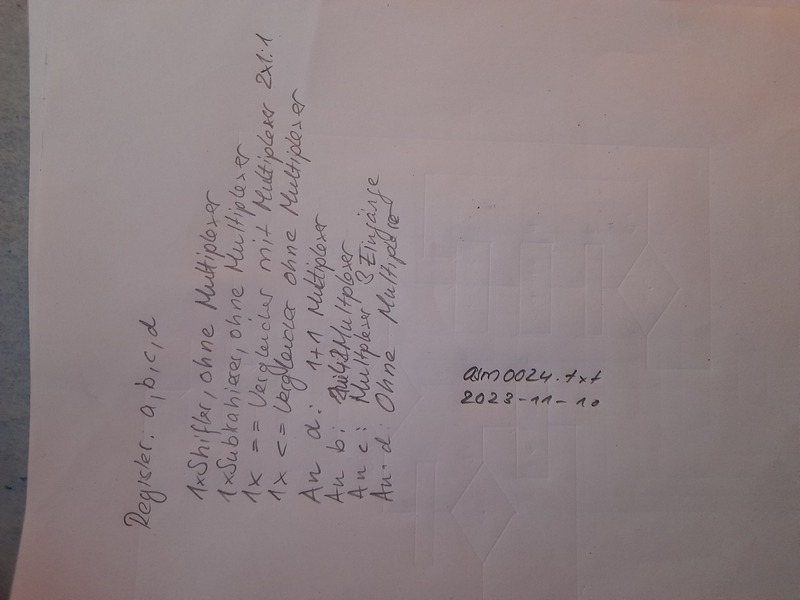 Register: a, b, c, d
1xShifter, ohne Multiplexer
1xSubtrahierer, ohne Multiplexer
1x == Vergleicher mit Multiplexer 2x1:1
1x <= Vergleicher ohne Multiplexer
An a: 1+1 Multiplexer
An b: Multiplexer
An c: Multiplexer 3 Eingänge
An d: Ohne Multiplexer
asm0024.txt
2023-11-10